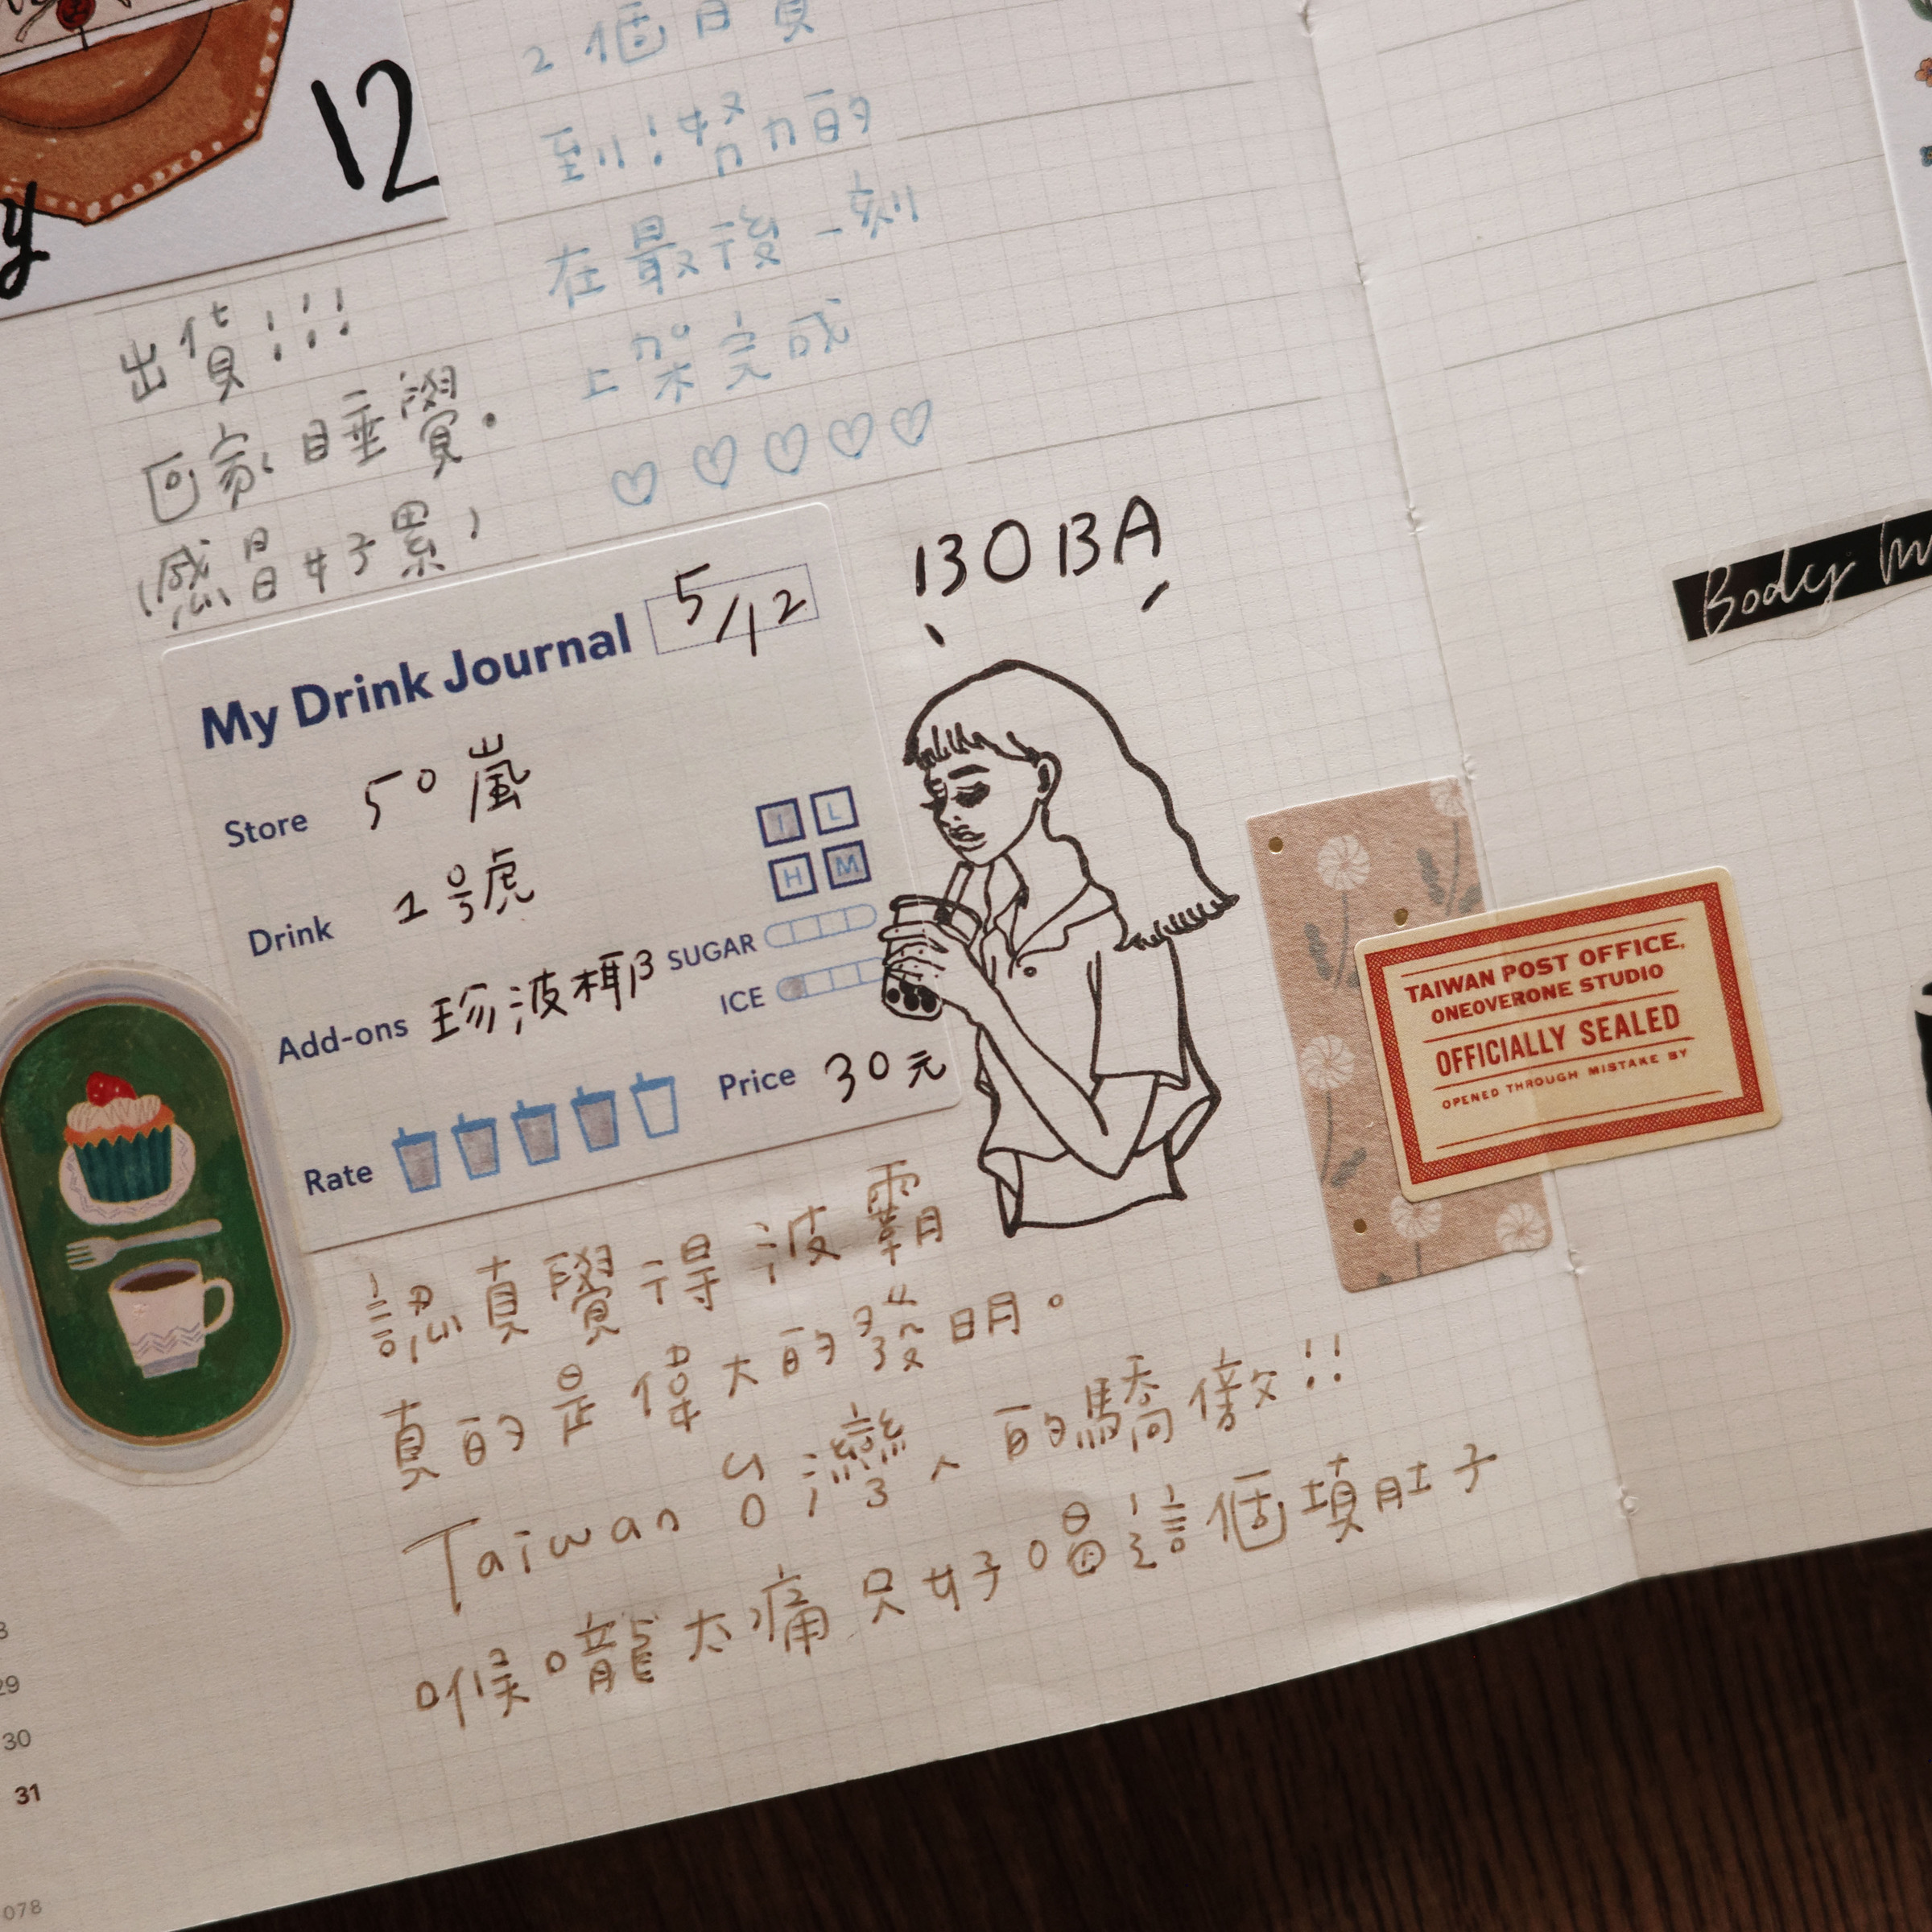 12
y
2個月貨
到!努力的
在最後一刻
上架完成
出貨!!!
回家睡覺.
感冒好累,
My Drink Journal 5/12
Store 50嵐
Drink 1号虎
Add-ons 珍波椰β
T L
H M
SUGAR
ICE
Rate
Price 30元
BOBA
認真覺得波霸
真的是偉大的發明。
Taiwan 台灣人的驕傲!!
喉嚨太痛只好喝這個填肚子
Body
TAIWAN POST OFFICE,
ONEOVERONE STUDIO
OFFICIALLY SEALED
OPENED THROUGH MISTAKE BY
29
30
31
078